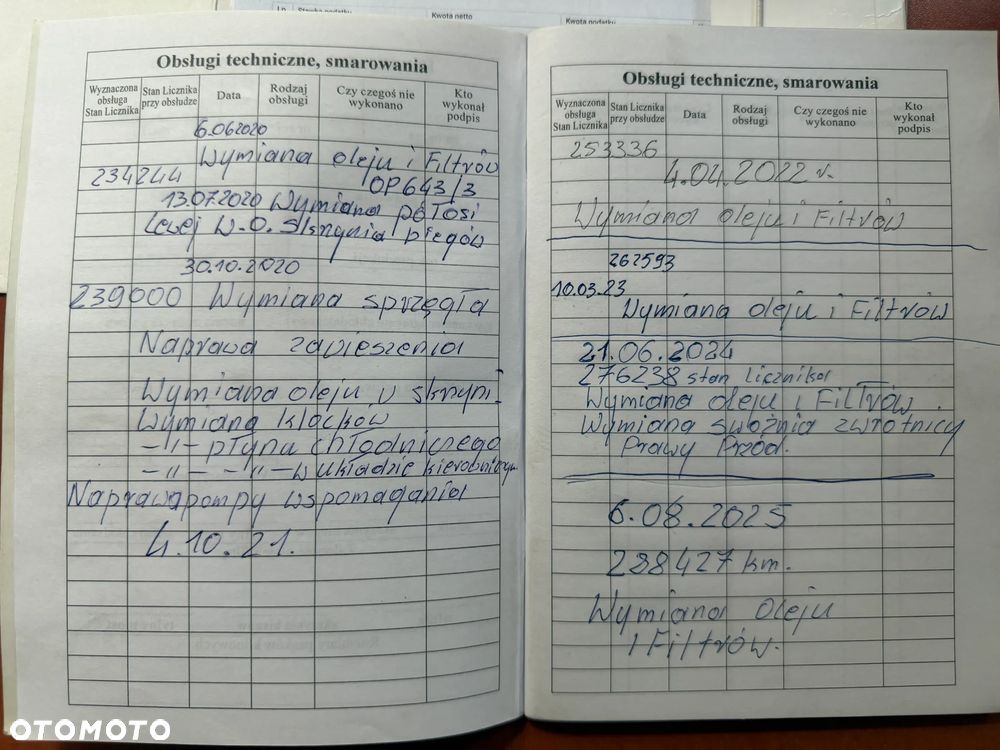 Lp.
Stawka podatku
Kwota netto
Kwota podatku
Obsługi techniczne, smarowania
Wyznaczona obsługa Stan Licznika
Stan Licznika przy obsłudze
Data
Rodzaj obsługi
Czy czegoś nie wykonano
Kto wykonał podpis
6.06.2020
Wymiana oleju i Filtrów
234244
OP643/3
13.07.2020 Wymiana półosi
Lewej W-O. Skrzynia biegów
30.10.2020
239000 Wymiana sprzęgła
Naprawa zawieszenia
Wymiana oleju w skrzyni
Wymiana klocków
-"- płynu chłodniczego
-"- -"- w układzie kierowniczym
Naprawa pompy wspomagania
4.10.21.
Obsługi techniczne, smarowania
Wyznaczona obsługa Stan Licznika
Stan Licznika przy obsłudze
Data
Rodzaj obsługi
Czy czegoś nie wykonano
Kto wykonał podpis
253336
4.04.2022 r.
Wymiana oleju i Filtrów
262593
10.03.23
Wymiana oleju i Filtrów
21.06.2024
276238 stan licznika
Wymiana oleju i Filtrów.
Wymiana swożnia zwrotnicy
Prawy Przód.
6.08.2025
288427 km.
Wymiana Oleju
i Filtrów.
OTOMOTO